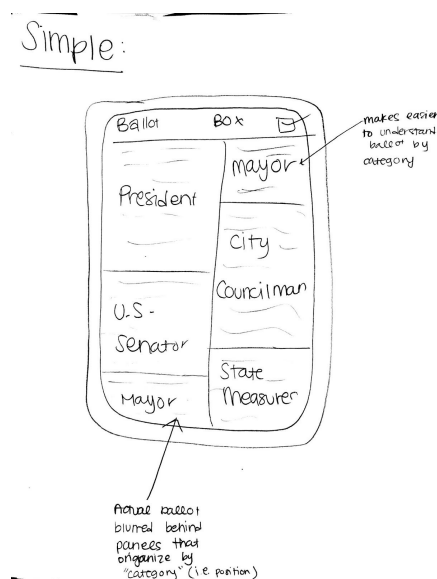 Simple:
Ballot Box
President
U.S.
Senator
Mayor
mayor
City
Councilman
State
Measures
makes easier
to understand
ballot by
category
Actual ballot
blurred behind
panels that
origanize by
"category" (i.e. position)